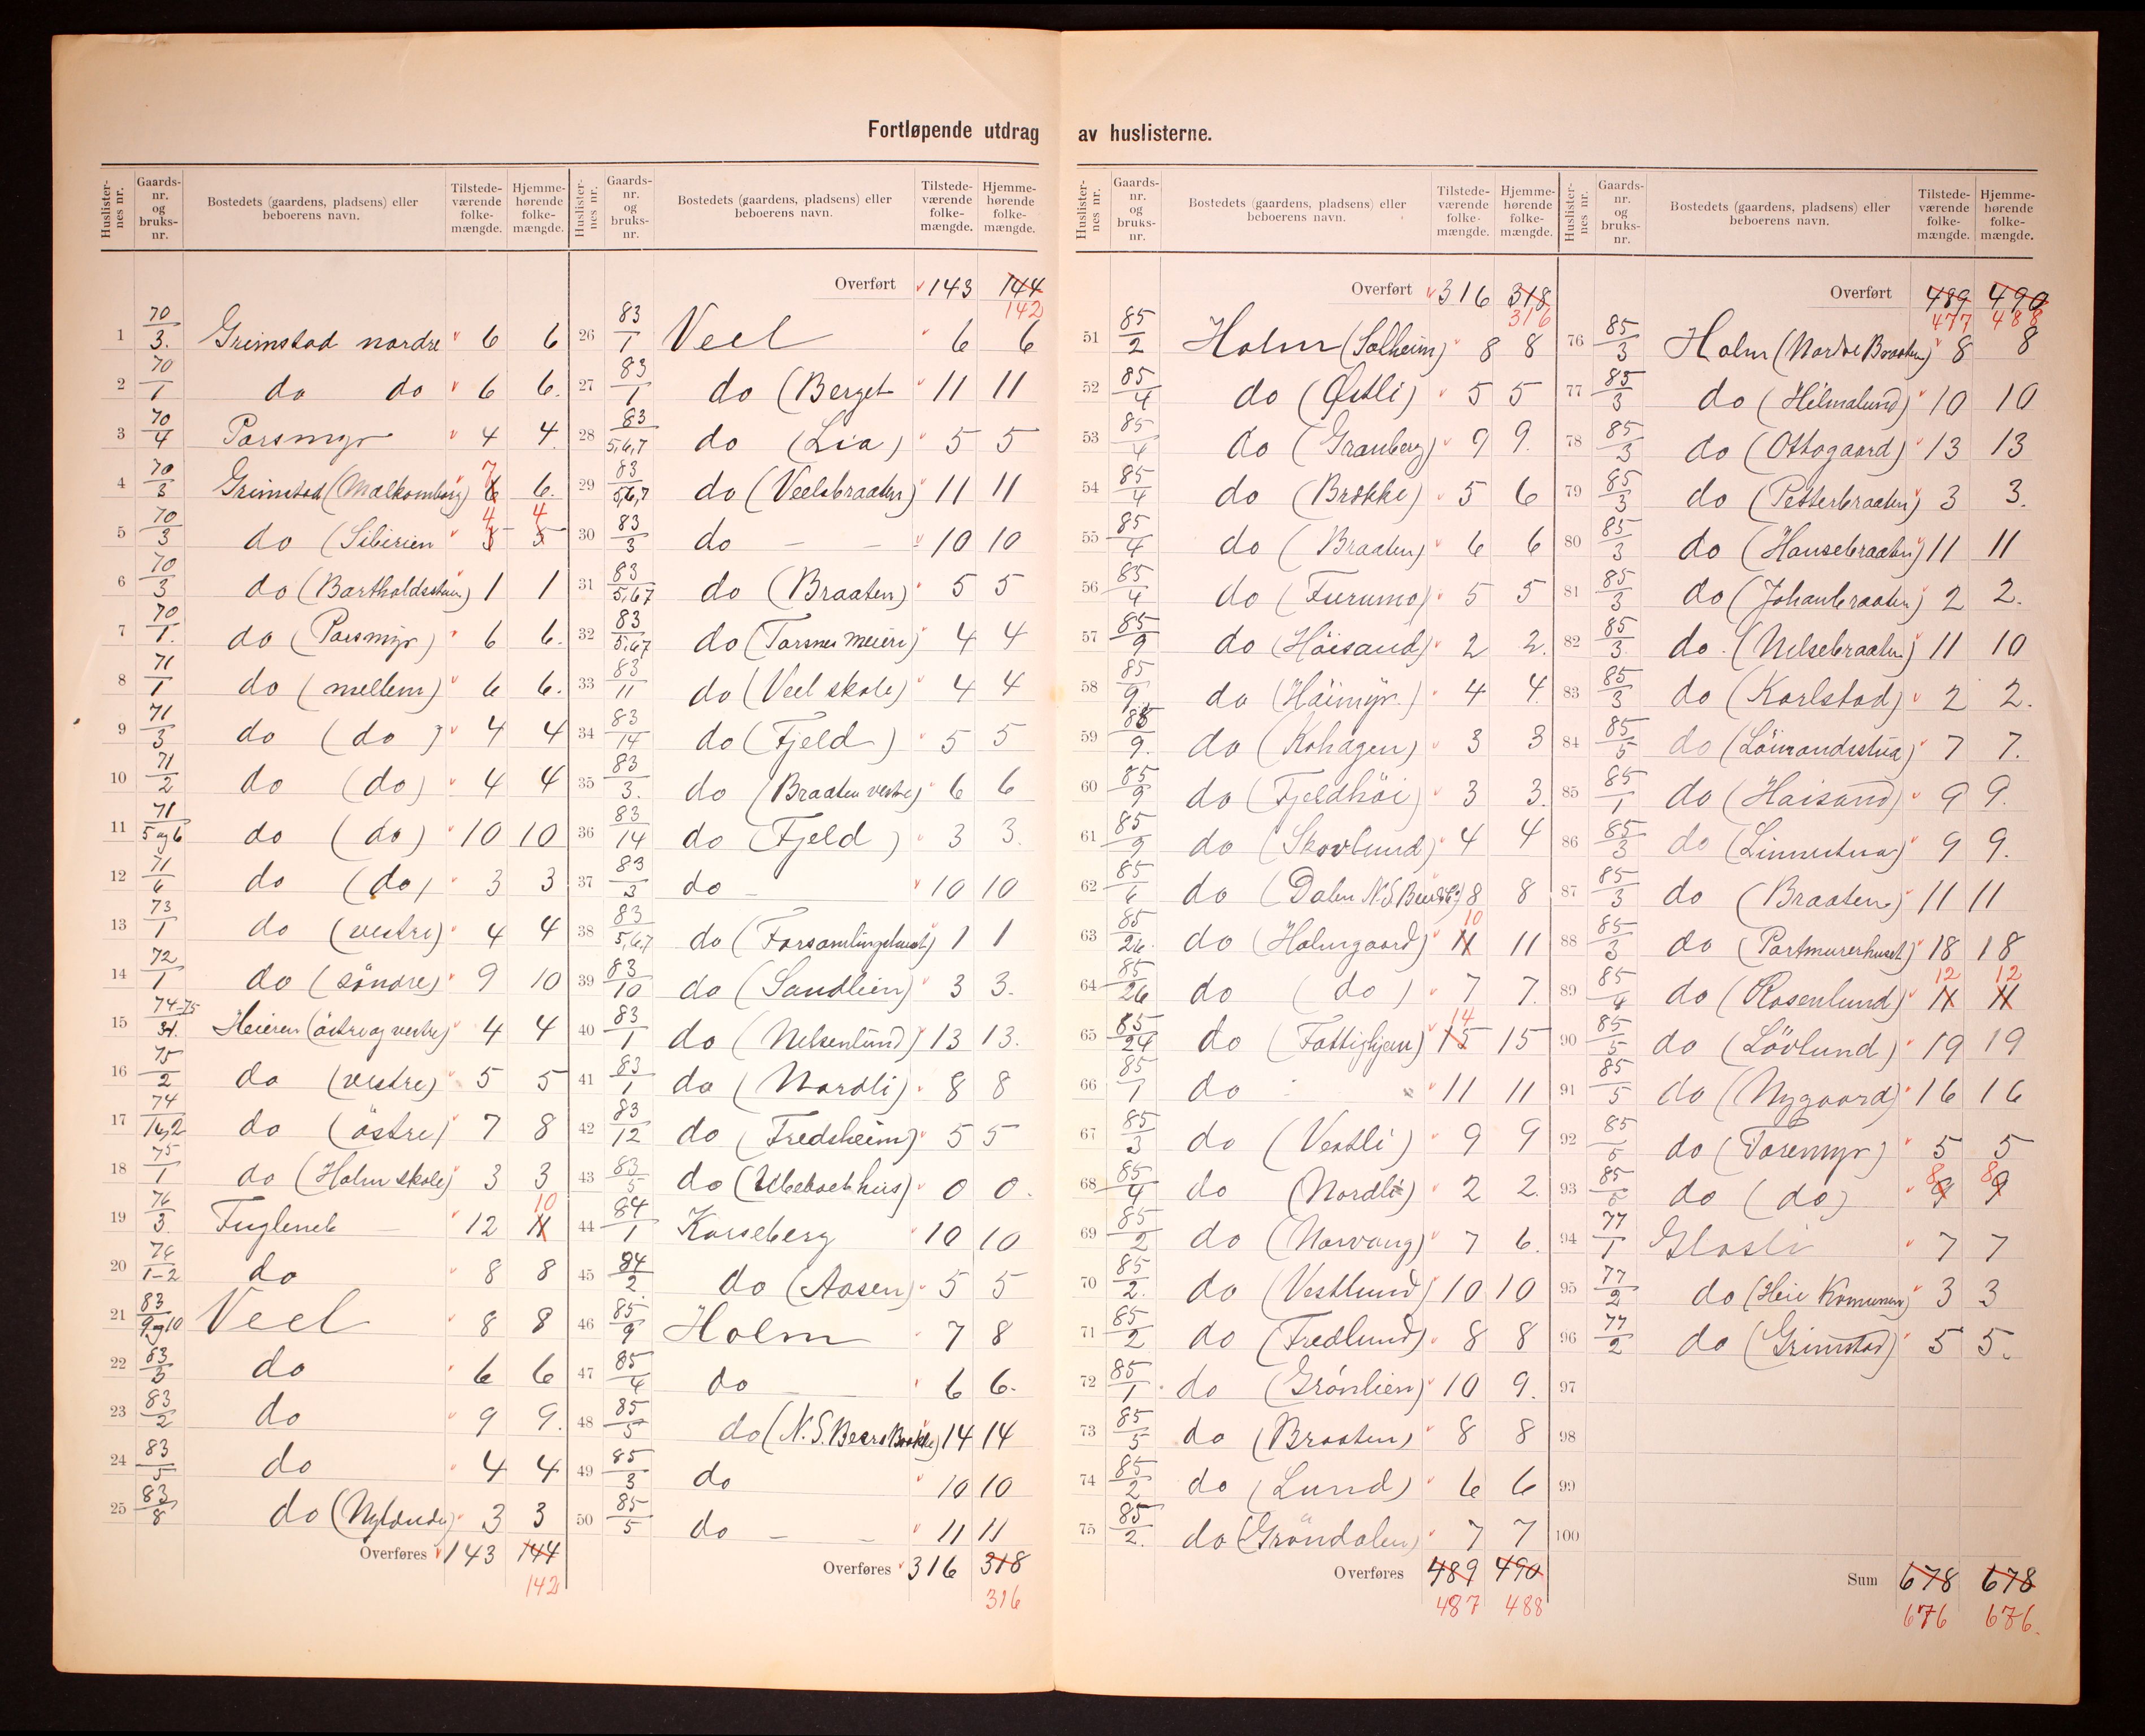 Fortløpende utdrag av huslisternе.
Huslister-nes nr. Gaards-nr. og bruks-nr. Bostedets (gaardens, pladsens) eller beboerens navn. Tilstede-værende folke-mængde. Hjemme-hørende folke-mængde.
1 70/3. Grimstad nordre 6 6
2 70/1 do do 6 6.
3 70/4 Porsmyr 4 4
4 70/3 Grimstad (Malkomborg) 6 7 6.
5 70/3 do (Siberien 5 4 5 4
6 70/3 do (Bartholdsstuen) 1 1
7 70/1. do (Porsmyr) 6 6.
8 71/1 do (mellem) 6 6.
9 71/3 do (do) 4 4
10 71/2 do (do) 4 4
11 71/5 og 6 do (do) 10 10
12 71/6 do (do) 3 3
13 73/1 do (vestre) 4 4
14 72/1 do (söndre) 9 10
15 74-75/31. Heieren (östre og vestre) 4 4
16 75/2 do (vestre) 5 5
17 74/1og2 do (östre) 7 8
18 75/1 do (Holm skole) 3 3
19 76/3. Fugleneb 12 11 10
20 76/1-2 do 8 8
21 83/9og10 Veel 8 8
22 83/3 do 6 6
23 83/2 do 9 9.
24 83/5 do 4 4
25 83/8 do (Nylænde) 3 3
Overføres 143 144
142
Huslister-nes nr. Gaards-nr. og bruks-nr. Bostedets (gaardens, pladsens) eller beboerens navn. Tilstede-værende folke-mængde. Hjemme-hørende folke-mængde.
Overført 143 144
142
26 83/1 Veel 6 6
27 83/1 do (Berget 11 11
28 83/5,6,7 do (Lia) 5 5
29 83/5,6,7 do (Veelsbraaten) 11 11
30 83/3 do — — 10 10
31 83/5,6,7 do (Braaten) 5 5
32 83/5,6,7 do (Torsnes meieri) 4 4
33 83/11 do (Veel skole) 4 4
34 83/14 do (Fjeld) 5 5
35 83/3. do (Braaten vestre) 6 6
36 83/14 do (Fjeld) 3 3.
37 83/3 do — 10 10
38 83/5,6,7 do (Forsamlingshuset) 1 1
39 83/10 do (Sandlien) 3 3.
40 83/1 do (Nelsenlund) 13 13.
41 83/1 do (Nordli) 8 8
42 83/12 do (Fredsheim) 5 5
43 83/5 do (Ubeboet hus) 0 0.
44 84/1 Korseberg 10 10
45 84/2. do (Aasen) 5 5
46 85/9 Holm 7 8
47 85/4 do 6 6.
48 85/5 do (N.S. Beers Brække) 14 14
49 85/3 do 10 10
50 85/5 do — — 11 11
Overføres 316 318
316
Huslister-nes nr. Gaards-nr. og bruks-nr. Bostedets (gaardens, pladsens) eller beboerens navn. Tilstede-værende folke-mængde. Hjemme-hørende folke-mængde.
Overført 316 318
316
51 85/2 Holm (Solheim) 8 8
52 85/4 do (Østli) 5 5
53 85/4 do (Granberg) 9 9.
54 85/4 do (Brække) 5 6
55 85/4 do (Braaten) 6 6
56 85/4 do (Furumo) 5 5
57 85/9 do (Höisand) 2 2.
58 85/9. do (Höimyr.) 4 4.
59 85/9. do (Kohagen) 3 3
60 85/9 do (Fjeldhöi) 3 3.
61 85/9 do (Skovlund) 4 4
62 85/6 do (Dalen N.S 8 8
63 85/26. do (Holmgaard) 11 10 11
64 85/26 do (do) 7 7.
65 85/24 do (Fattighjem) 15 14 15
66 85/1 do 11 11
67 85/3 do (Vestli) 9 9
68 85/4 do (Nordli) 2 2.
69 85/2 do (Norvang) 7 6.
70 85/2. do (Vestlund) 10 10
71 85/2 do (Fredlund) 8 8
72 85/1 do (Grönlien) 10 9.
73 85/5 do (Braaten) 8 8
74 85/2 do (Lund) 6 6
75 85/2. do (Gröndalen) 7 7
Overføres 489 490
487 488
Huslister-nes nr. Gaards-nr. og bruks-nr. Bostedets (gaardens, pladsens) eller beboerens navn. Tilstede-værende folke-mængde. Hjemme-hørende folke-mængde.
Overført 489 490
477 488
76 85/3 Holm (Nordre Braaten) 8 8
77 85/3 do (Hilmalund) 10 10
78 85/3 do (Ottogaard) 13 13
79 85/3 do (Petterbraaten) 3 3.
80 85/3 do (Hansebraaten) 11 11
81 85/3 do (Johanbraaten) 2 2.
82 85/3. do. (Nelsebraaten) 11 10
83 85/3 do (Karlstad) 2 2.
84 85/5 do 7 7.
85 85/1 do (Höisand) 9 9.
86 85/3 do (Linnestua) 9 9.
87 85/3 do (Braaten) 11 11
88 85/3 do (Portmurerhuset) 18 18
89 85/4 do (Rosenlund) 11 12 11 12
90 85/5 do (Lövlund) 19 19
91 85/5 do (Nygaard) 16 16
92 85/5 do (Toremyr) 5 5
93 85/5 do (do) 9 8 9 8
94 77/1 Glosli 7 7
95 77/2 do (Heie Komunen) 3 3
96 77/2 do (Grimstad) 5 5.
97
98
99
100
Sum 678 678
676 676.